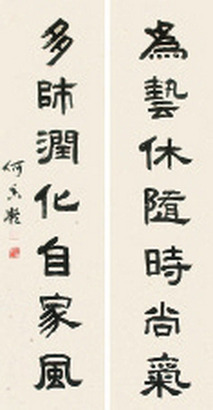 為藝休隨時尚氣
多師潤化自家風
何香凝